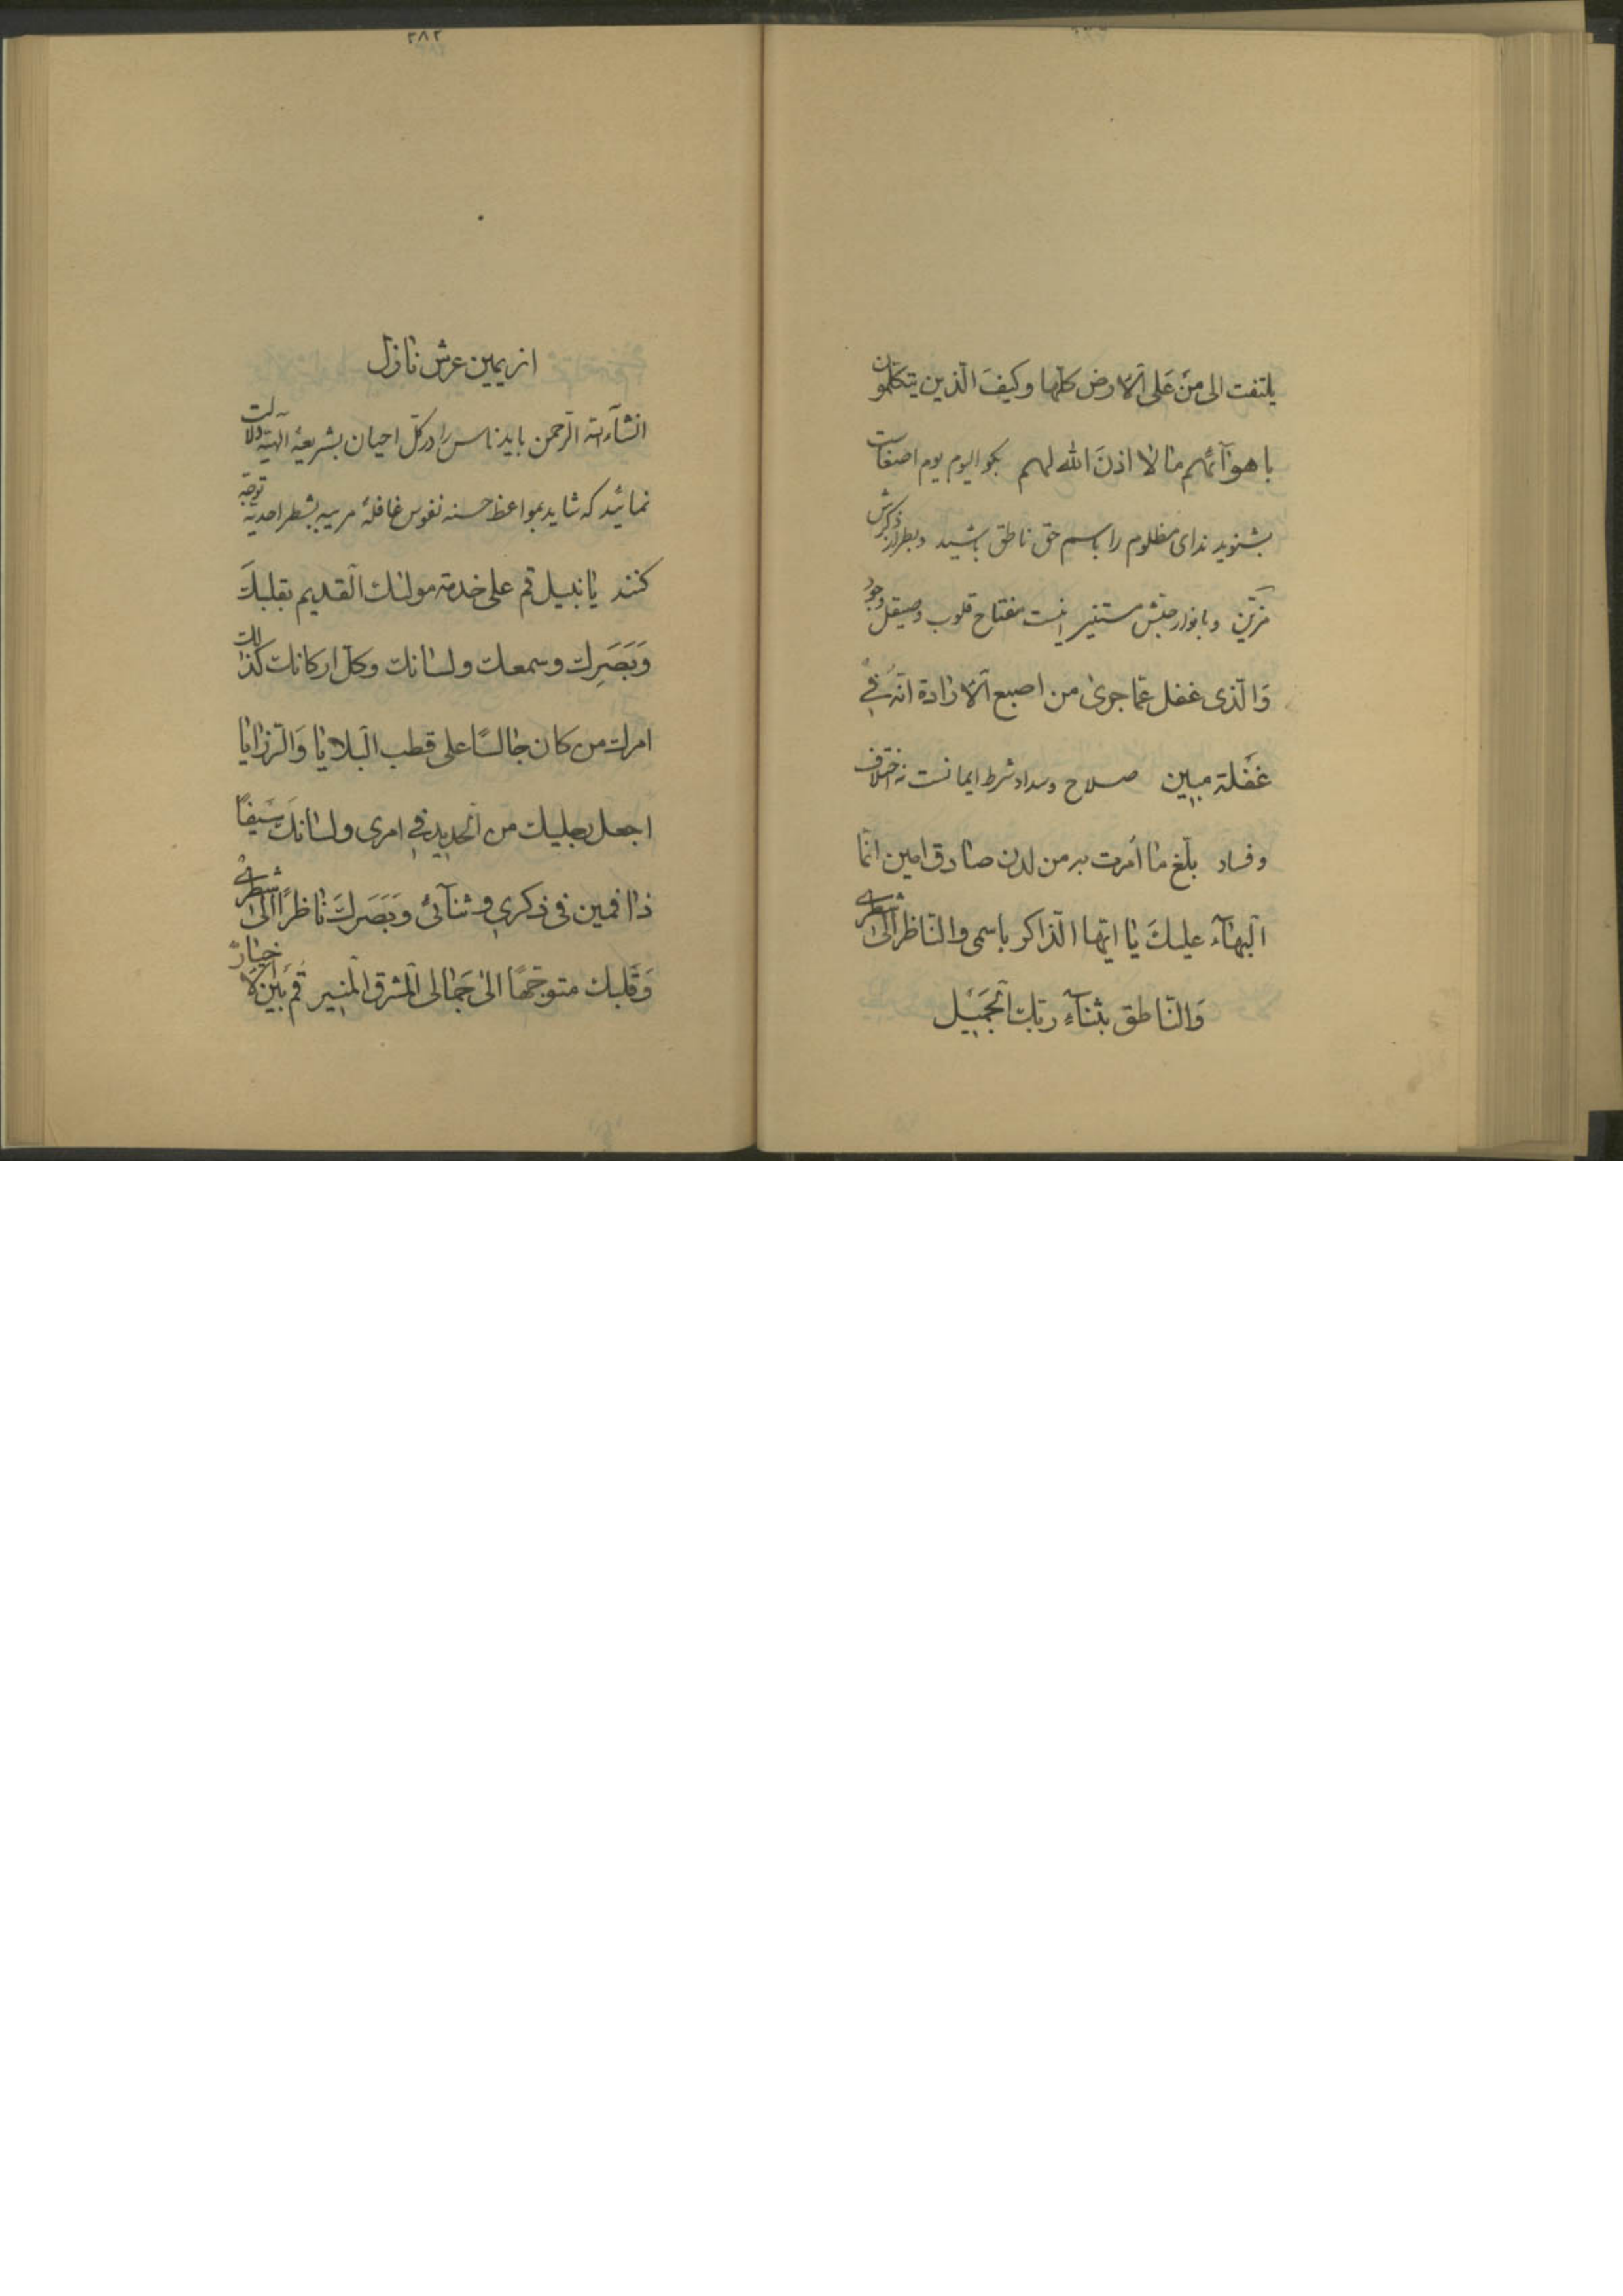 یلتفت الی مَنْ عَلی الْاَرض کلّها وکیفَ الّذین یتکلّمون
باهوآئهم مَا لا اذنَ الله لهم بگو الیوم یوم اصغاست
بشنوید ندای مظلوم را باسم حق ناطق باشید و بطراز ذکرش
مزیّن و بانوار حبّش مستنیر اینست مفتاح قلوب و صیقل وجود
وَالّذی غفل عمّا جریٰ من اصبع الْاراَدة انّه فی
غفلة مبین صلاح و سداد شرط ایمانست نه اختلاف
و فساد بلّغ ما اُمرت به من لدن صادق امین انّما
الْبهآء علیكَ یا ایّها الذّاکر باسمی والنّاظر الی شطری
وَالنّاطق بثنآءِ ربّك الْجَمیل
۲۸۲
از یمین عرش نازل
انشآءالله الرّحمن باید ناس را در کلّ احیان بشریعهٔ الهیّه دلالت
نمائید که شاید بمواعظ حسنه نفوس غافلهٔ مریبه بشطر احدیّه توجّه
کنند یا نبیل قم علی خدمة مولئك الْقدیم بقلبكَ
وَبَصَرِك وسمعك ولسانك وکلّ ارکانك کذلك
امرك من کان جالسًا علی قطب الْبلایا وَالرّزایا
اجعل رجلیك من الْحدید فی امری ولسانكَ سَیفًا
ذا فمین فی ذکری وثنآئی وبَصَركَ ناظرًا الی شطری
وَقَلبك متوجّهًا الیٰ جَمالی الْمشرق الْمنیر قم بَیْن الْاَخیار